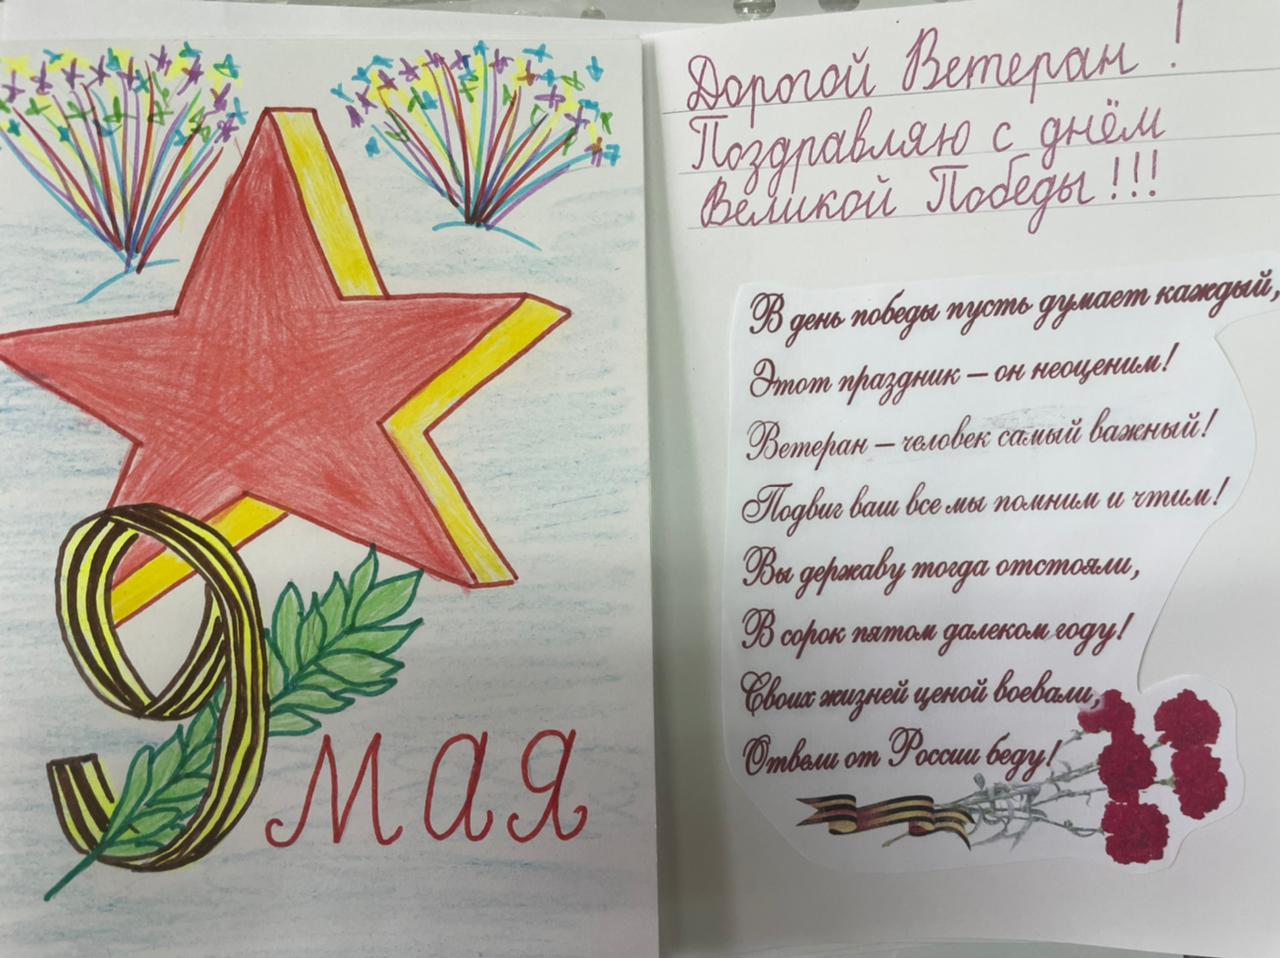 9 мая
Дорогой Ветеран !
Поздравляю с днём
Великой Победы!!!
В день победы пусть думает каждый,
Этот праздник – он неоценим!
Ветеран – человек самый важный!
Подвиг ваш все мы помним и чтим!
Вы державу тогда отстояли,
В сорок пятом далеком году!
Своих жизней ценой воевали,
Отвели от России беду!